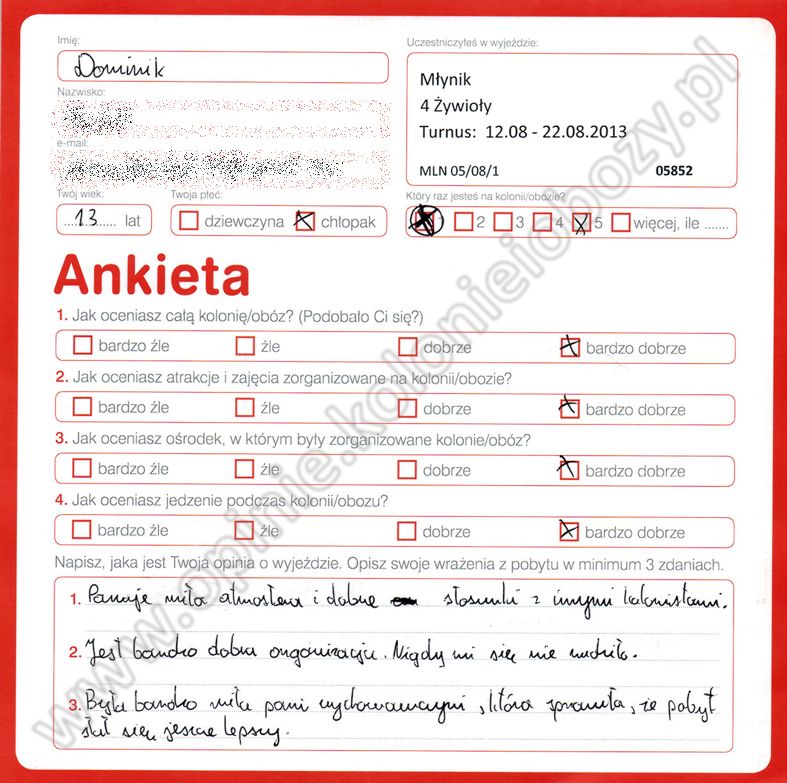 Imię:
Dominik
Uczestniczyłeś w wyjeździe:
Młynik
4 Żywioły
Turnus: 12.08 - 22.08.2013
MLN 05/08/1 05852
Nazwisko:
e-mail:
Twój wiek:
13 lat
Twoja płeć:
dziewczyna chłopak
Który raz jesteś na kolonii/obozie?
1 2 3 4 5 więcej, ile .......
Ankieta
1. Jak oceniasz całą kolonię/obóz? (Podobało Ci się?)
bardzo źle źle dobrze bardzo dobrze
2. Jak oceniasz atrakcje i zajęcia zorganizowane na kolonii/obozie?
bardzo źle źle dobrze bardzo dobrze
3. Jak oceniasz ośrodek, w którym były zorganizowane kolonie/obóz?
bardzo źle źle dobrze bardzo dobrze
4. Jak oceniasz jedzenie podczas kolonii/obozu?
bardzo źle źle dobrze bardzo dobrze
Napisz, jaka jest Twoja opinia o wyjeździe. Opisz swoje wrażenia z pobytu w minimum 3 zdaniach.
1. Panuje miła atmosfera i dobre stosunki z innymi kolonistami.
2. Jest bardzo dobra organizacja. Nigdy mi się nie nudziło.
3. Była bardzo miła pani wychowawczyni, która sprawiła, że pobyt
stał się jeszcze lepszy.
www.opinie.kolonieiobozy.pl